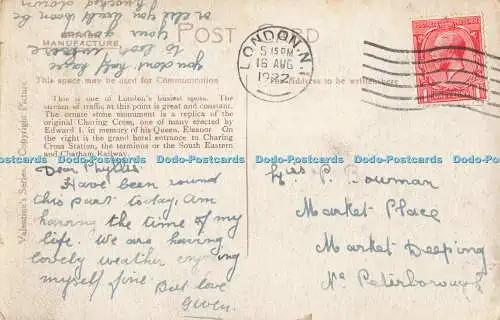 you dont half have
to look where
your a goin
or else you will soon be
knocked down
POST CARD
MANUFACTURE
This space may be used for Communication
The address to be written here
LONDON.N.1
5 15 PM
16 AUG
1922
This is one of London's busiest spots. The
stream of traffic at this point is great and constant.
The ornate stone monument is a replica of the
original Charing Cross, one of many erected by
Edward I. in memory of his Queen, Eleanor. On
the right is the grand hotel entrance to Charing
Cross Station, the terminus or the South Eastern
and Chatham Railway.
Valentine's Series. Copyright Picture
Dear Phyllis
Have been round
this part today, Am
having the time of my
life. We are having
lovely weather enjoying
myself fine.
Best love
Gwen.
Miss P. Bowman
Market Place
Market Deeping
Nr Peterborough
Dodo-Postcards Dodo-Postcards Dodo-Postcards Dodo-Postcards